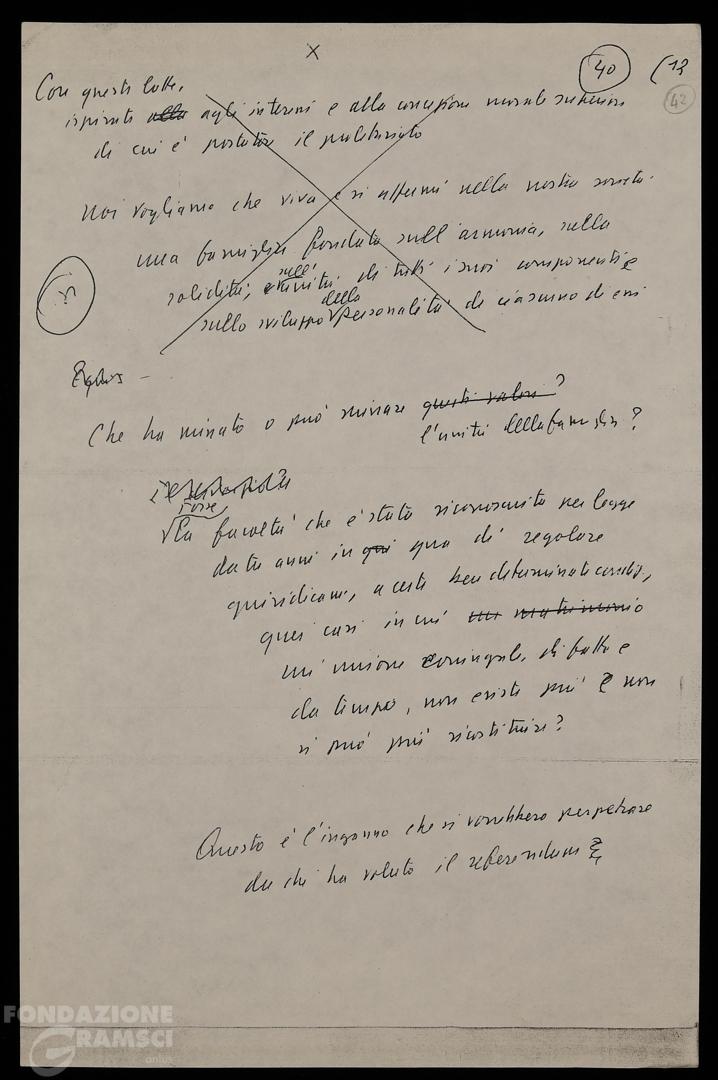 X
40 (12
42
Con queste lotte,
ispirate alla agli interessi e alla concezione morale superiore
di cui è portatore il proletariato
noi vogliamo che viva e si affermi nella nostra società
una famiglia fondata sull'armonia, sulla
solidità, sull' unità di tutti i suoi componenti e
sullo sviluppo della personalità di ciascuno di essi
Che ha minato o può minare questi valori?
l'unità della famiglia?
Forse
la facoltà che è stata riconosciuta per legge
da tre anni in qui qua di regolare
giuridicam., a certe ben determinate condiz.,
quei casi in cui un matrimonio
un'unione coniugale, di fatto e
da tempo, non esiste più e non
si può più ricostituire?
Questo è l'inganno che si vorrebbero perpetrare
da chi ha voluto il referendum
FONDAZIONE
GRAMSCI
onlus